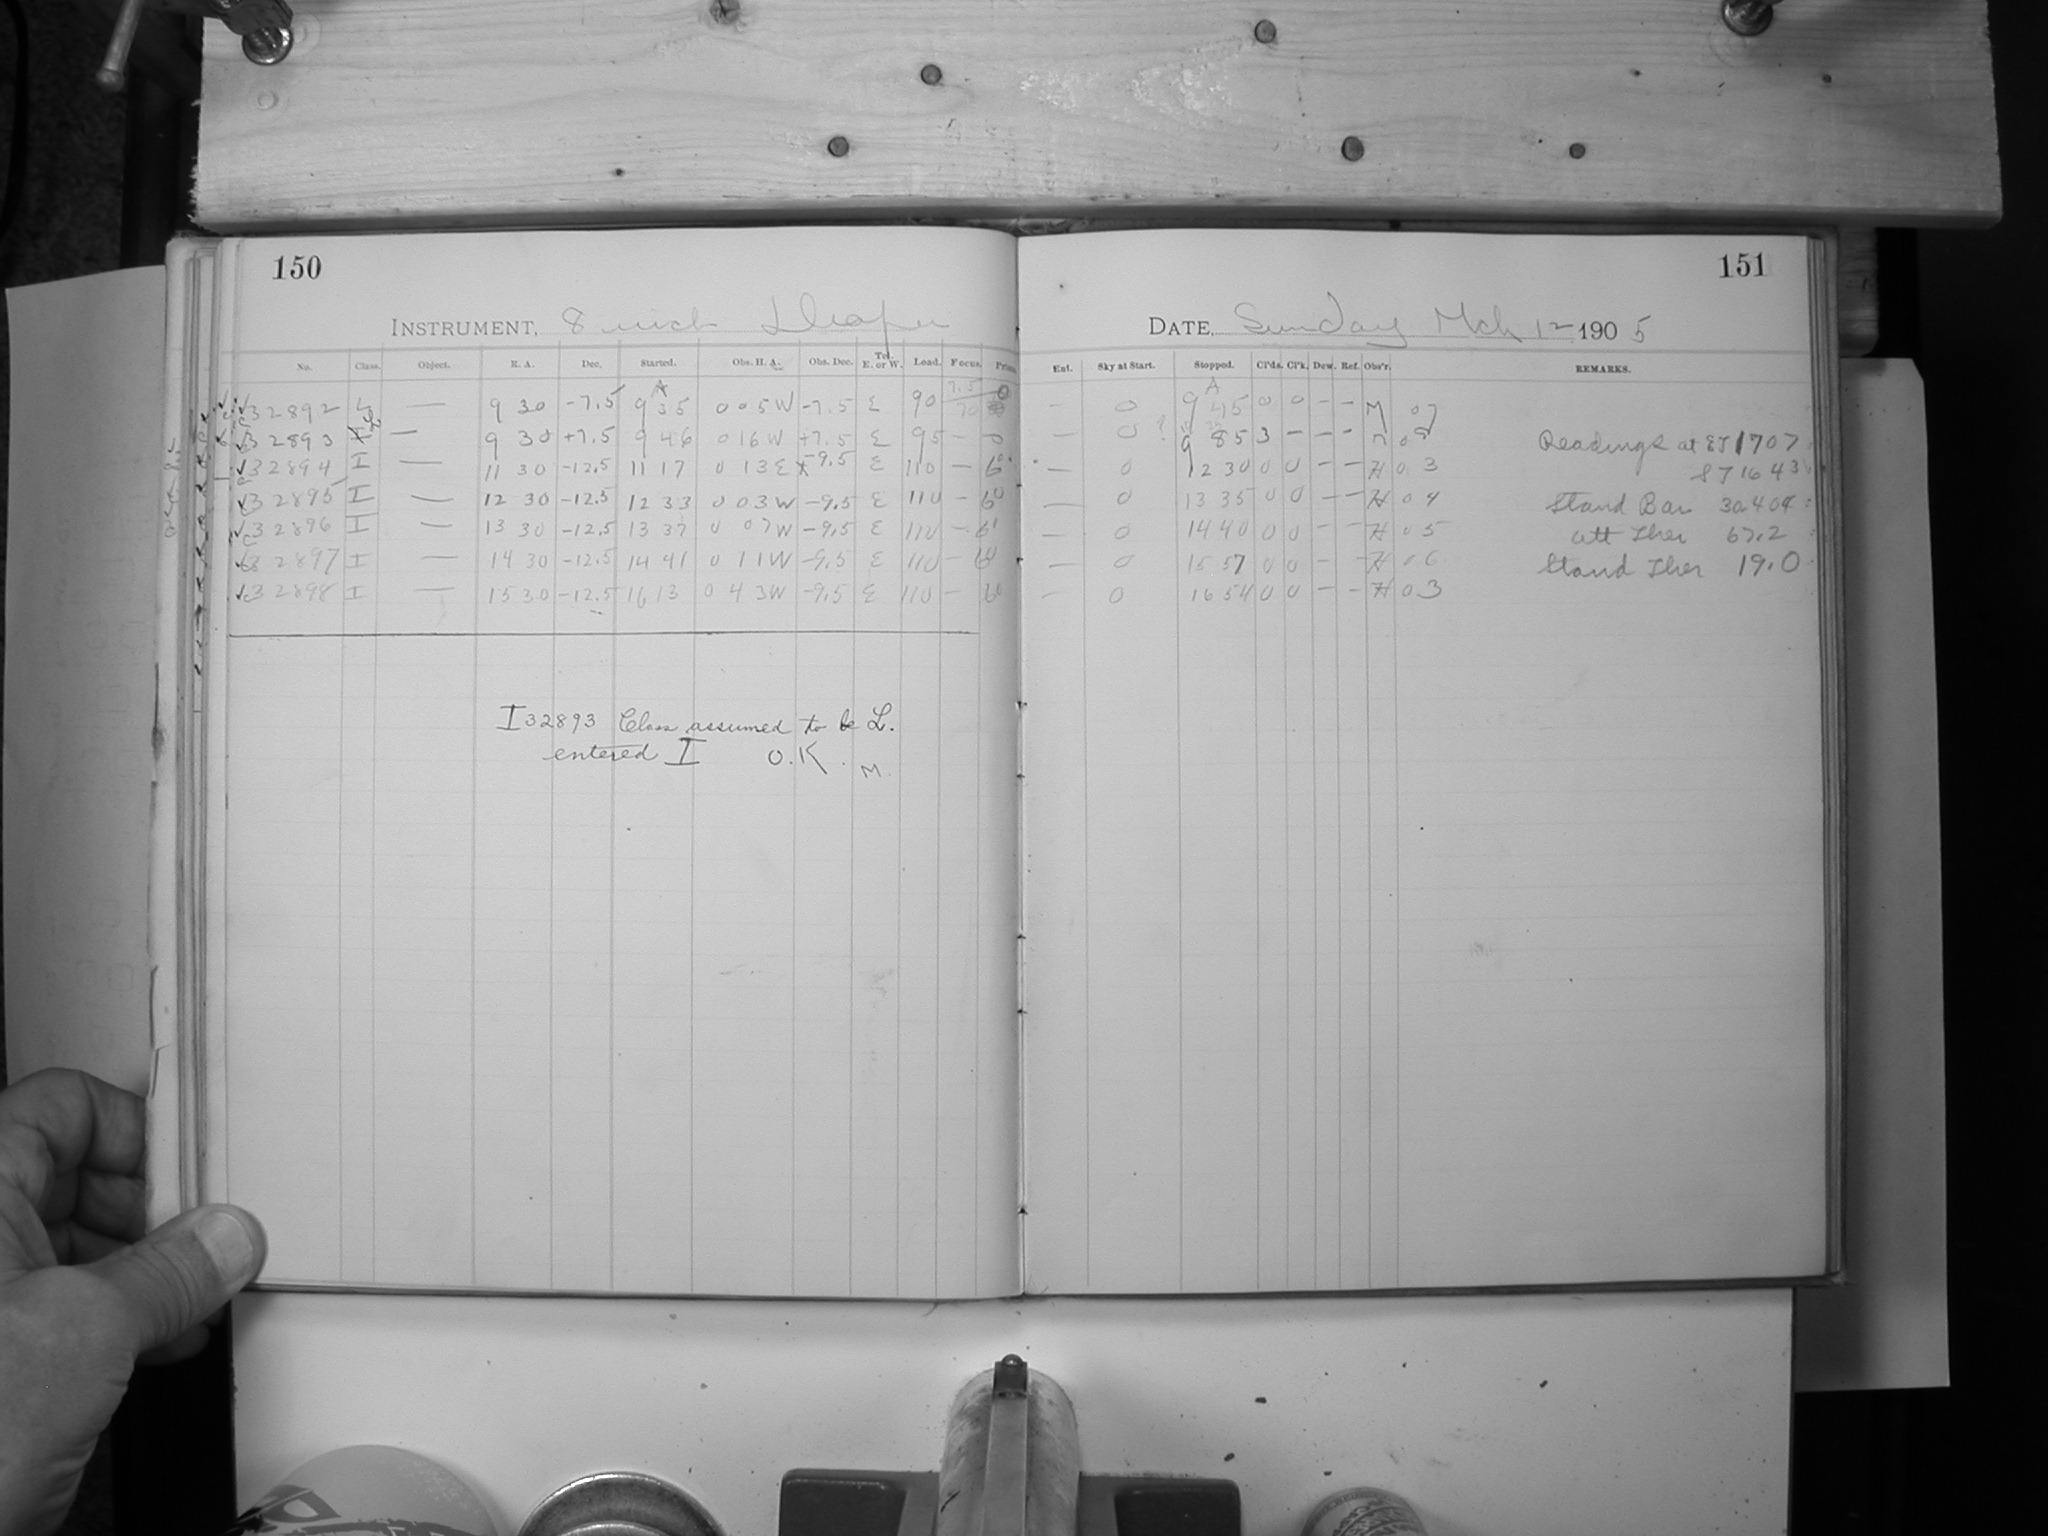 150
151
INSTRUMENT, 8 inch Draper
DATE, Sunday Mch 12 1905
No. Class. Object. R. A. Dec. Started. Obs. H. A. Obs. Dec. Tel. E. or W. Load. Focus.
Ent. Sky at Start. Stopped. Cl'ds. Cl'k. Dew. Ref. Obs'r. REMARKS.
32892 L — 9 30 -7.5 9 35 0 05W -7.5 E 90 — 0 9 45 0 0 - - M 07
32893 L — 9 30 +7.5 9 46 0 16W +7.5 E 95 — — 0 ? 9 85 3 - - - Readings at ST 1707
32894 I — 11 30 -12.5 11 17 0 13E -9.5 E 110 — 0 12 30 0 0 - - H 03 ST 1643
32895 I — 12 30 -12.5 12 33 0 03W -9.5 E 110 — — 0 13 35 0 0 - - H 04 Stand Bar 30.404
32896 I — 13 30 -12.5 13 37 0 07W -9.5 E 110 — — 0 14 40 0 0 - - H 05 att Ther 67.2
32897 I — 14 30 -12.5 14 41 0 11W -9.5 E 110 — — 0 15 57 0 0 - H 06 Stand Ther 19.0
32898 I — 15 30 -12.5 16 13 0 43W -9.5 E 110 — — 0 16 54 0 0 - - H 03
I 32893 Class assumed to be L.
entered I O.K. M.